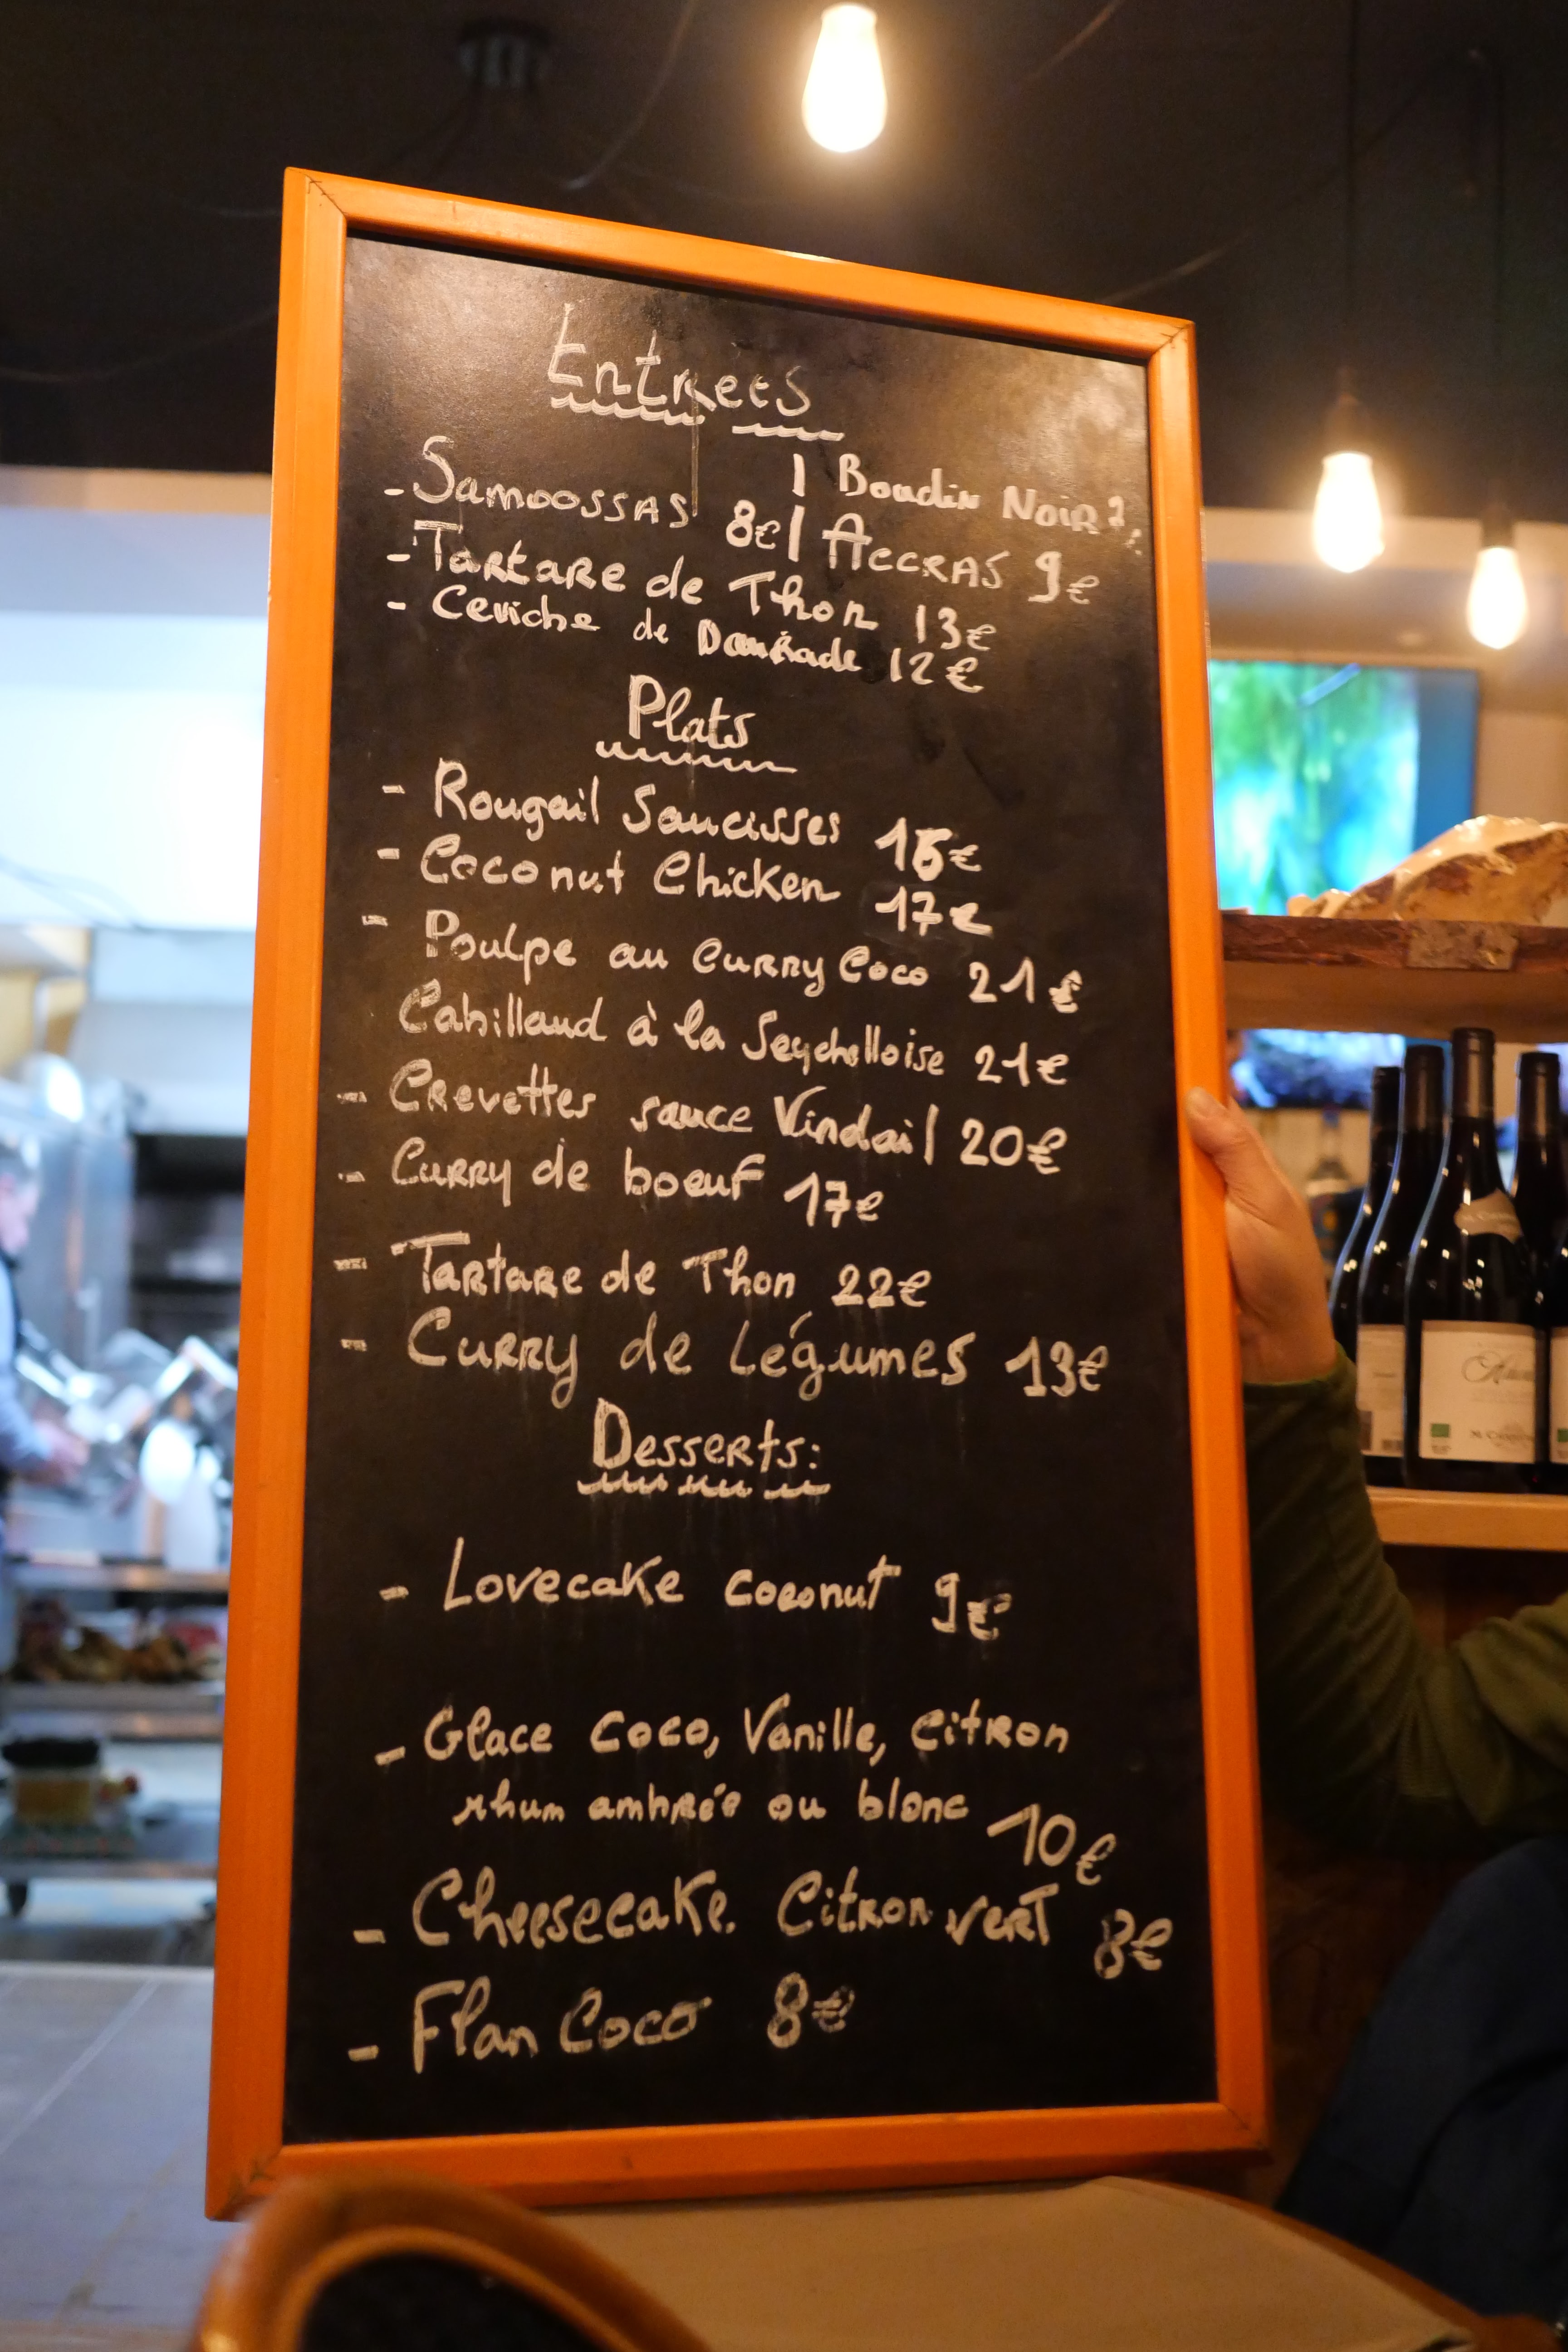 Entrees
- Samoossas 8€ | Boudin Noir
| Accras 9€
- Tartare de Thon 13€
- Ceviche de Daurade 12€
Plats
- Rougail Saucisses 16€
- Coconut Chicken 17€
- Poulpe au Curry Coco 21€
Cabillaud à la Seychelloise 21€
- Crevettes sauce Vindail 20€
- Curry de boeuf 17€
- Tartare de Thon 22€
- Curry de Légumes 13€
Desserts:
- Lovecake coconut 9€
- Glace Coco, Vanille, Citron
rhum ambrée ou blanc 10€
- Cheesecake. Citron vert 8€
- Flan Coco 8€